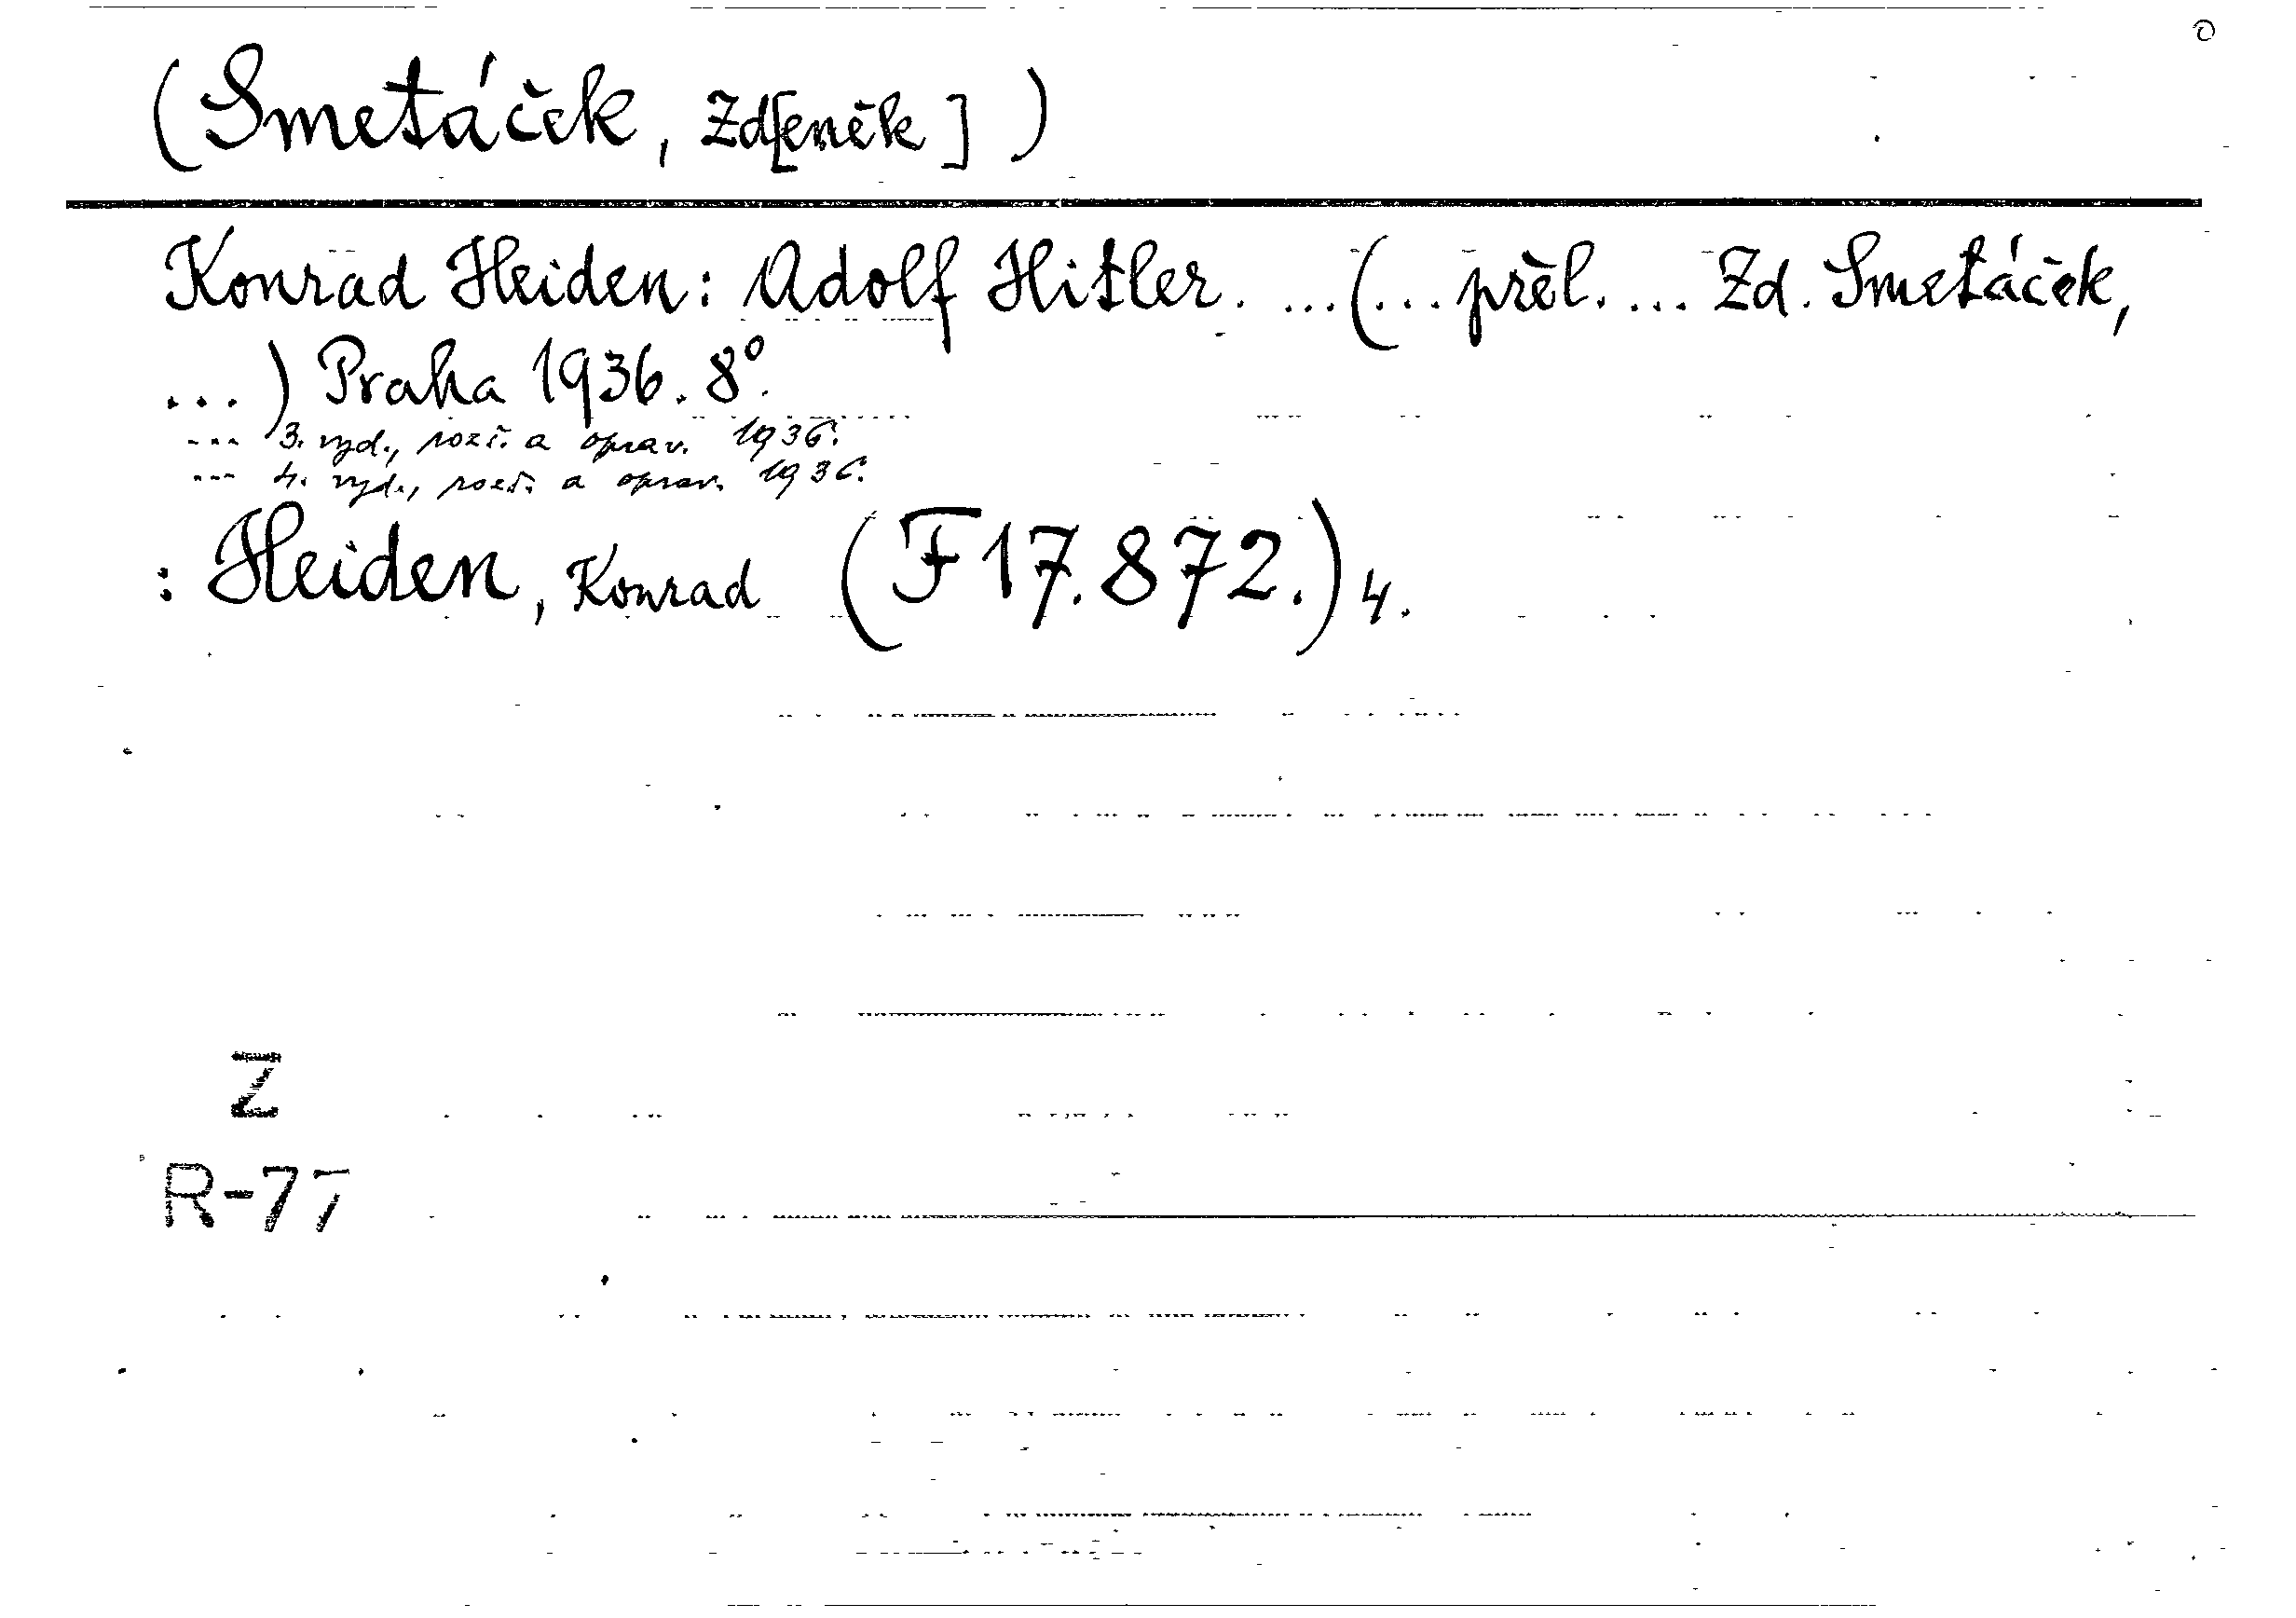 (Smetáček, Zd[eněk])
Konrad Heiden: Adolf Hitler. ...(... přel. ... Zd. Smetáček,
...) Praha 1936. 8°.
--- 3. vyd., rozš. a oprav. 1936.
--- 4. vyd., rozš. a oprav. 1936.
: Heiden, Konrad (F 17.872.) 4.
Z
R-77